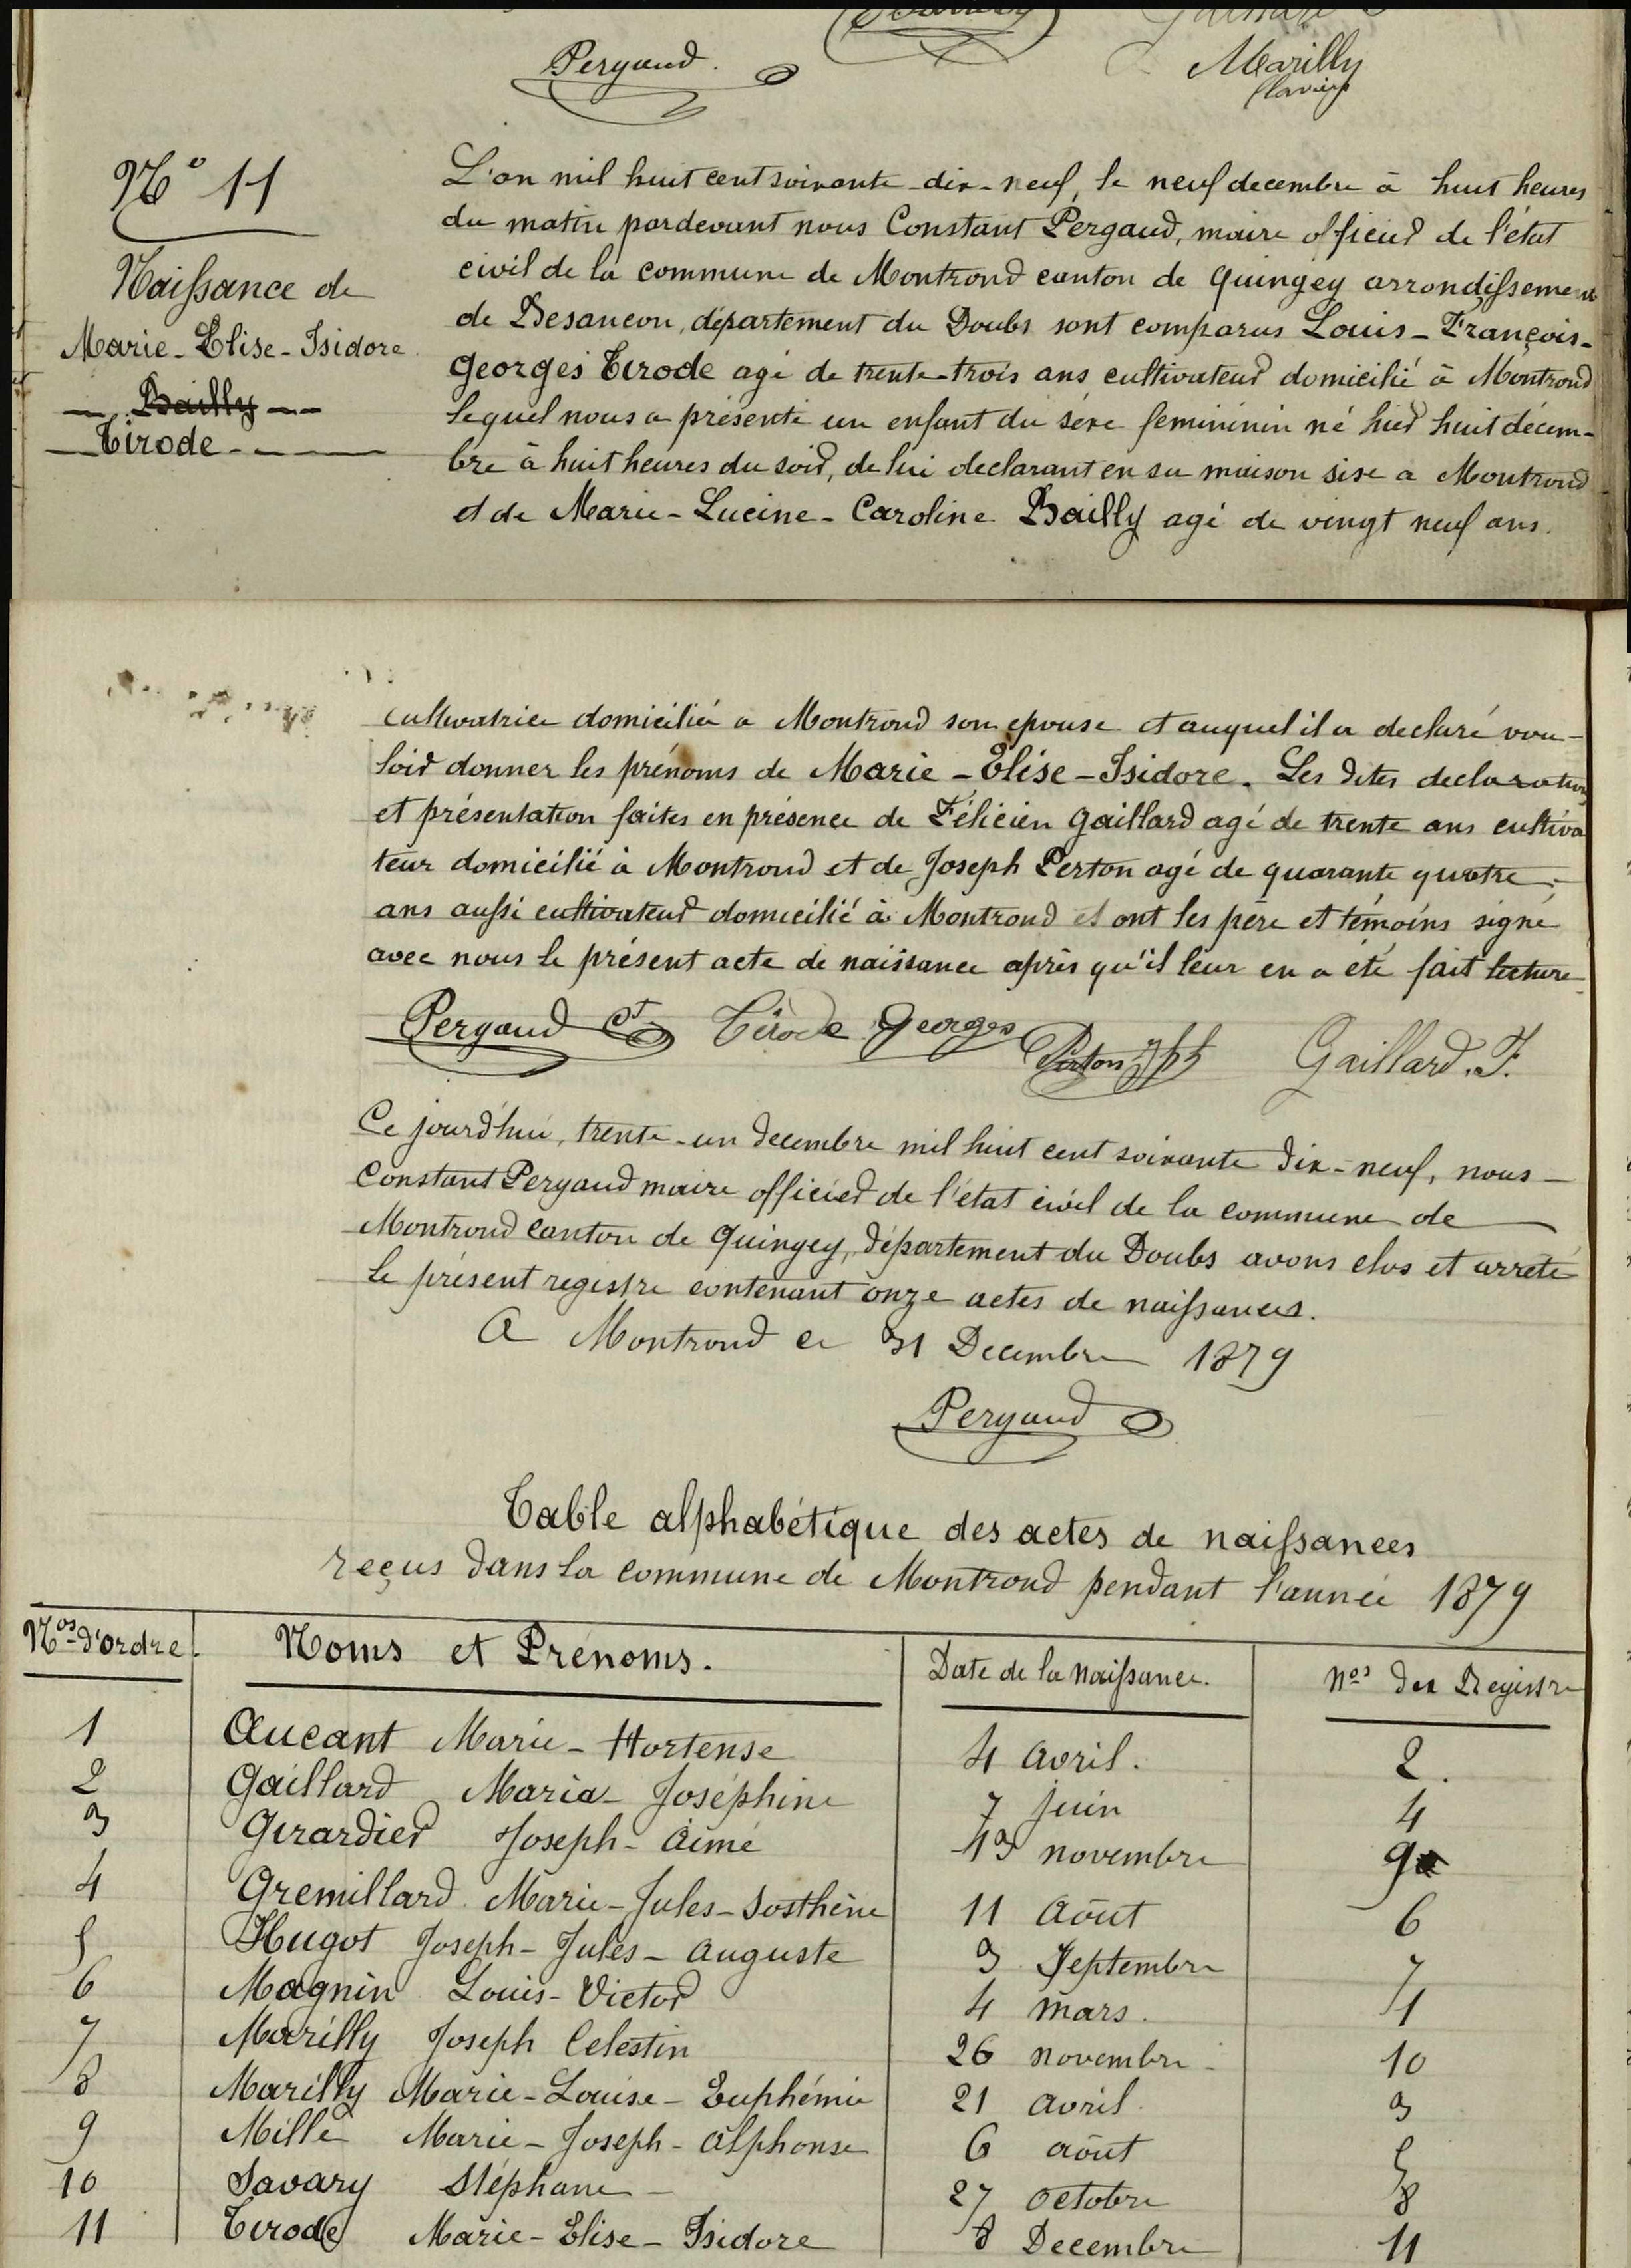 Pergaud.
Marilly
Flavien
N° 11
Naissance de
Marie-Elise-Isidore
Bailly
Tirode
L'an mil huit cent soixante-dix-neuf, le neuf decembre à huit heures
du matin pardevant nous Constant Pergaud, maire officier de l'état
civil de la commune de Montrond canton de Quingey arrondissement
de Besancon, département du Doubs sont comparus Louis-François-
Georges Tirode agé de trente-trois ans cultivateur domicilié à Montrond
lequel nous a présenté un enfant du sexe femininin né hier huit décem-
bre à huit heures du soir, de lui declarant en sa maison sise a Montrond
et de Marie-Lucine-Caroline Bailly agé de vingt neuf ans.
cultivatrice domiciliée a Montrond son epouse et auquel il a declaré vou-
loir donner les prénoms de Marie-Elise-Isidore. Les dites declaration
et présentation faites en présence de Félicien Gaillard agé de trente ans cultiva
teur domicilié à Montrond et de Joseph Perton agé de quarante quatre
ans aussi cultivateur domicilié à Montrond et ont les père et témoins signé
avec nous le présent acte de naissance après qu'il leur en a été fait lecture
Pergaud Ct Tirode Georges
Perton Jph Gaillard.F.
Ce jourd'hui, trente-un decembre mil huit cent soixante dix-neuf, nous
Constant Pergaud maire officier de l'état civil de la commune de
Montrond canton de Quingey, département du Doubs avons clos et arrêté
le présent registre contenant onze actes de naissances.
A Montrond ce 31 Decembre 1879
Pergaud
Table alphabétique des actes de naissances
reçus dans la commune de Montrond pendant l'année 1879
Nos d'ordre. Noms et Prénoms. Date de la Naissance. Nos des Registre
1 Aucant Marie-Hortense 4 avril. 2.
2 Gaillard Maria-Joséphine 7 juin 4
3 Girardier Joseph-Aimé 13 novembre 9
4 Gremillard Marie-Jules-Sosthène 11 Août 6
5 Hugot Joseph-Jules-Auguste 3 Septembre 7
6 Magnin Louis-Victor 4 mars. 1
7 Marilly Joseph Celestin 26 novembre 10
8 Marilly Marie-Louise-Euphémie 21 avril 3
9 Mille Marie-Joseph-Alphonse 6 août 5
10 Savary Stéphane 27 octobre 8
11 Tirode Marie-Elise-Isidore 8 Decembre 11